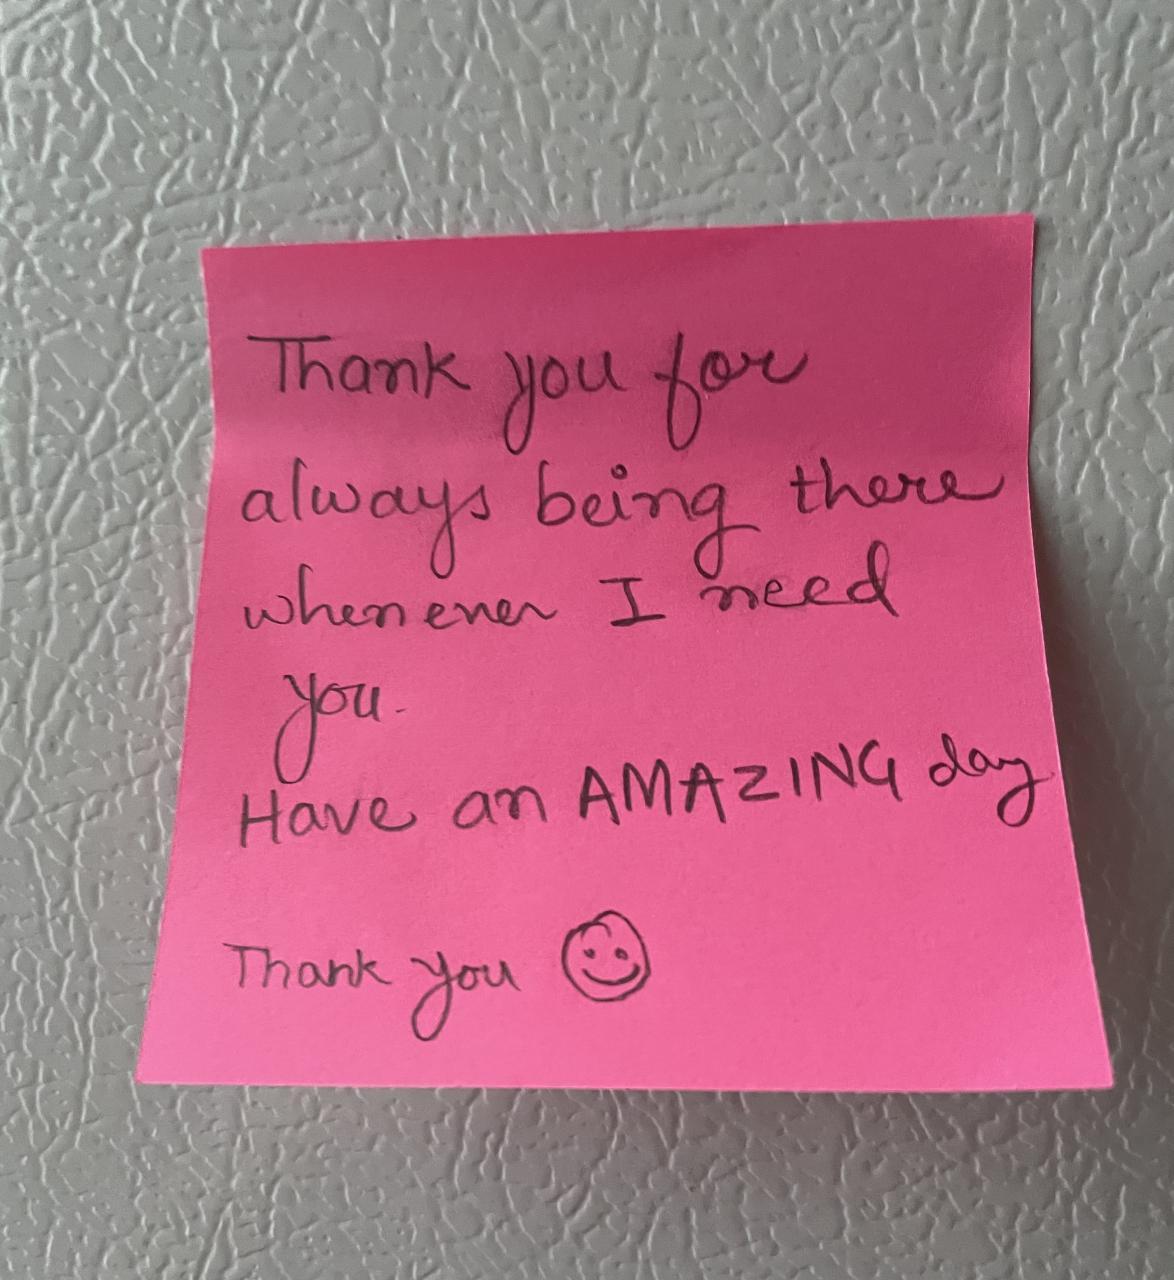 Thank you for
always being there
whenever I need
you.
Have an AMAZING day
Thank you